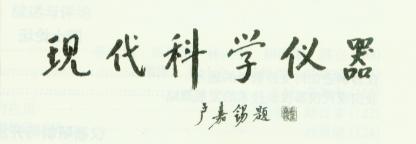 现代科学仪器
卢嘉锡题